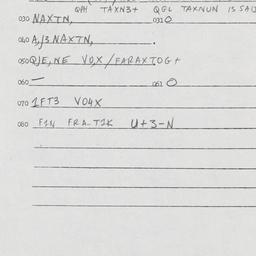 QAH TAXN3+ QGL TAXNUN IS SAID
030 NAXTN, 031 O
040 A,/3 NAXTN, .
050 Q)E,NE VO,X/FARAXTOG+
060 — 061 O
070 1FT3 VO4X
080 F1N FRA-T1K U+3-N